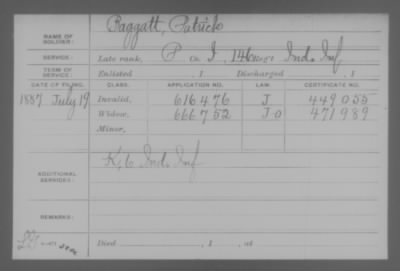 NAME OF SOLDIER: Baggatt, Patrick
SERVICE: Late rank, P Co. I, 146 Reg't Ind. Inf
TERM OF SERVICE: Enlisted , 1 Discharged , 1
DATE OF FILING. CLASS. APPLICATION NO. LAW. CERTIFICATE NO.
1887 July 19 Invalid, 616476 J 449055
Widow, 666752 J O 471989
Minor,
ADDITIONAL SERVICES: K, 6 Ind. Inf
REMARKS:
Died , 1 , at